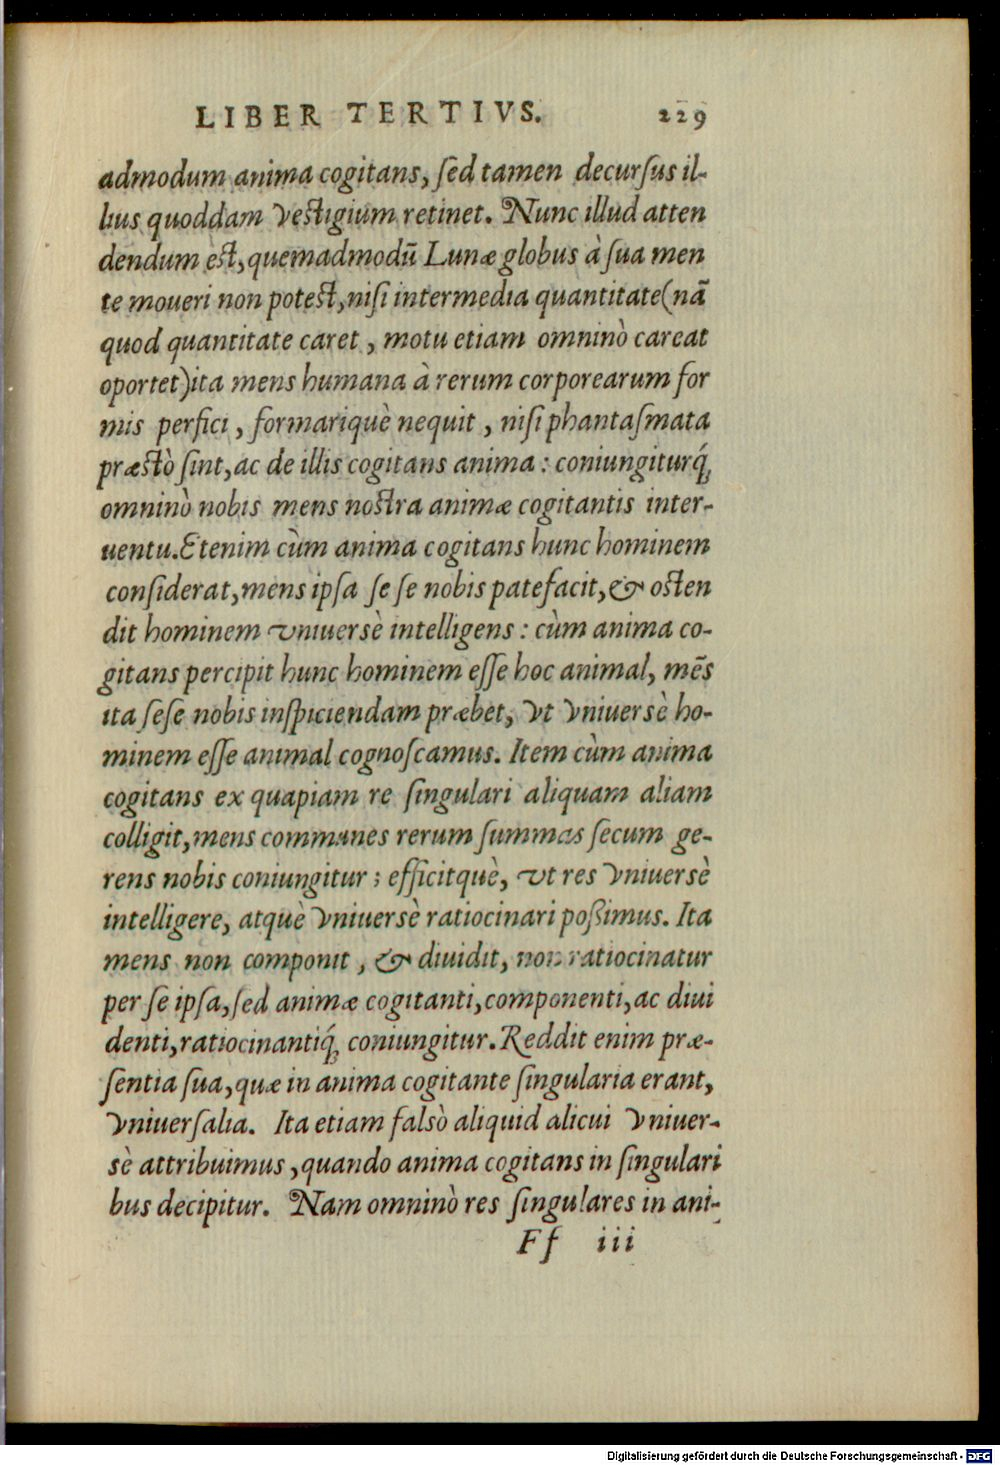 LIBER TERTIVS. 229
admodum anima cogitans, sed tamen decursus il-
lius quoddam vestigium retinet. Nunc illud atten
dendum èst, quemadmodū Lunæ globus à sua men
te moueri non potest, nisi intermedia quantitate (nā
quod quantitate caret, motu etiam omninò careat
oportet) ita mens humana à rerum corporearum for
mis perfici, formariquè nequit, nisi phantasmata
præstò sint, ac de illis cogitans anima: coniungiturq́;
omninò nobis mens nostra animæ cogitantis inter-
uentu. Etenim cùm anima cogitans hunc hominem
considerat, mens ipsa se se nobis patefacit, & osten
dit hominem vniuersè intelligens: cùm anima co-
gitans percipit hunc hominem esse hoc animal, mēs
ita sese nobis inspiciendam præbet, vt vniuersè ho-
minem esse animal cognoscamus. Item cùm anima
cogitans ex quapiam re singulari aliquam aliam
colligit, mens communes rerum summas secum ge-
rens nobis coniungitur; efficitquè, vt res vniuersè
intelligere, atquè vniuersè ratiocinari possimus. Ita
mens non componit, & diuidit, non ratiocinatur
per se ipsa, sed animæ cogitanti, componenti, ac diui
denti, ratiocinantiq́; coniungitur. Reddit enim præ-
sentia sua, quæ in anima cogitante singularia erant,
vniuersalia. Ita etiam falsò aliquid alicui vniuer-
sè attribuimus, quando anima cogitans in singulari
bus decipitur. Nam omninò res singulares in ani-
Ff iii
Digitalisierung gefördert durch die Deutsche Forschungsgemeinschaft - DFG